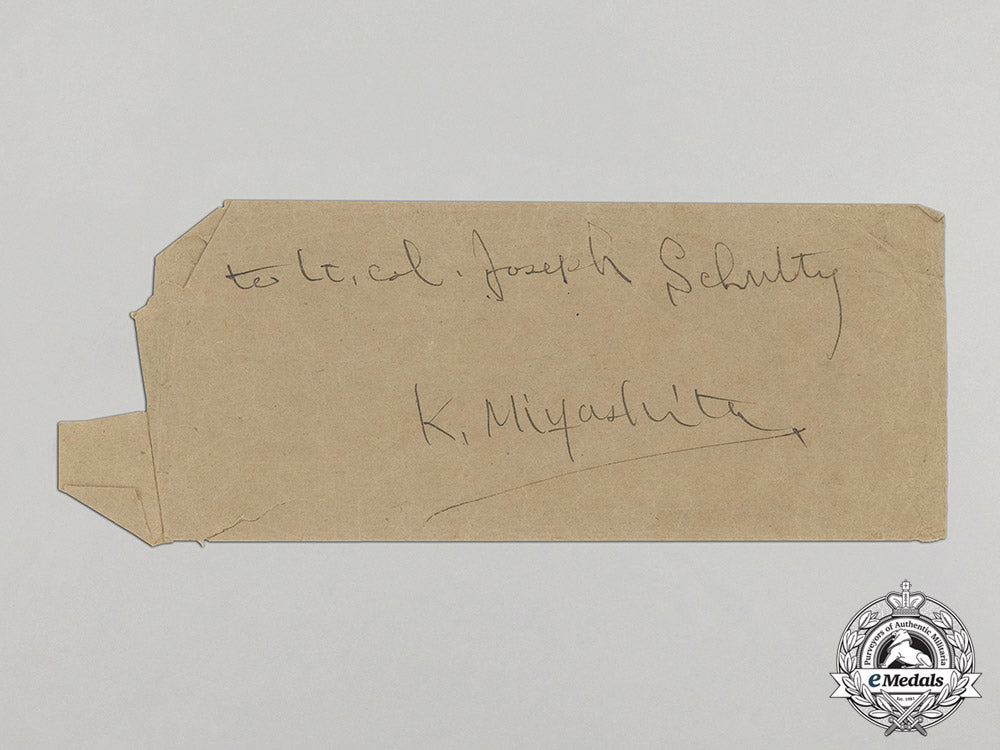 to Lt. col. Joseph Schultz
K. Miyashita
Purveyors of Authentic Militaria
eMedals
Est. 1985